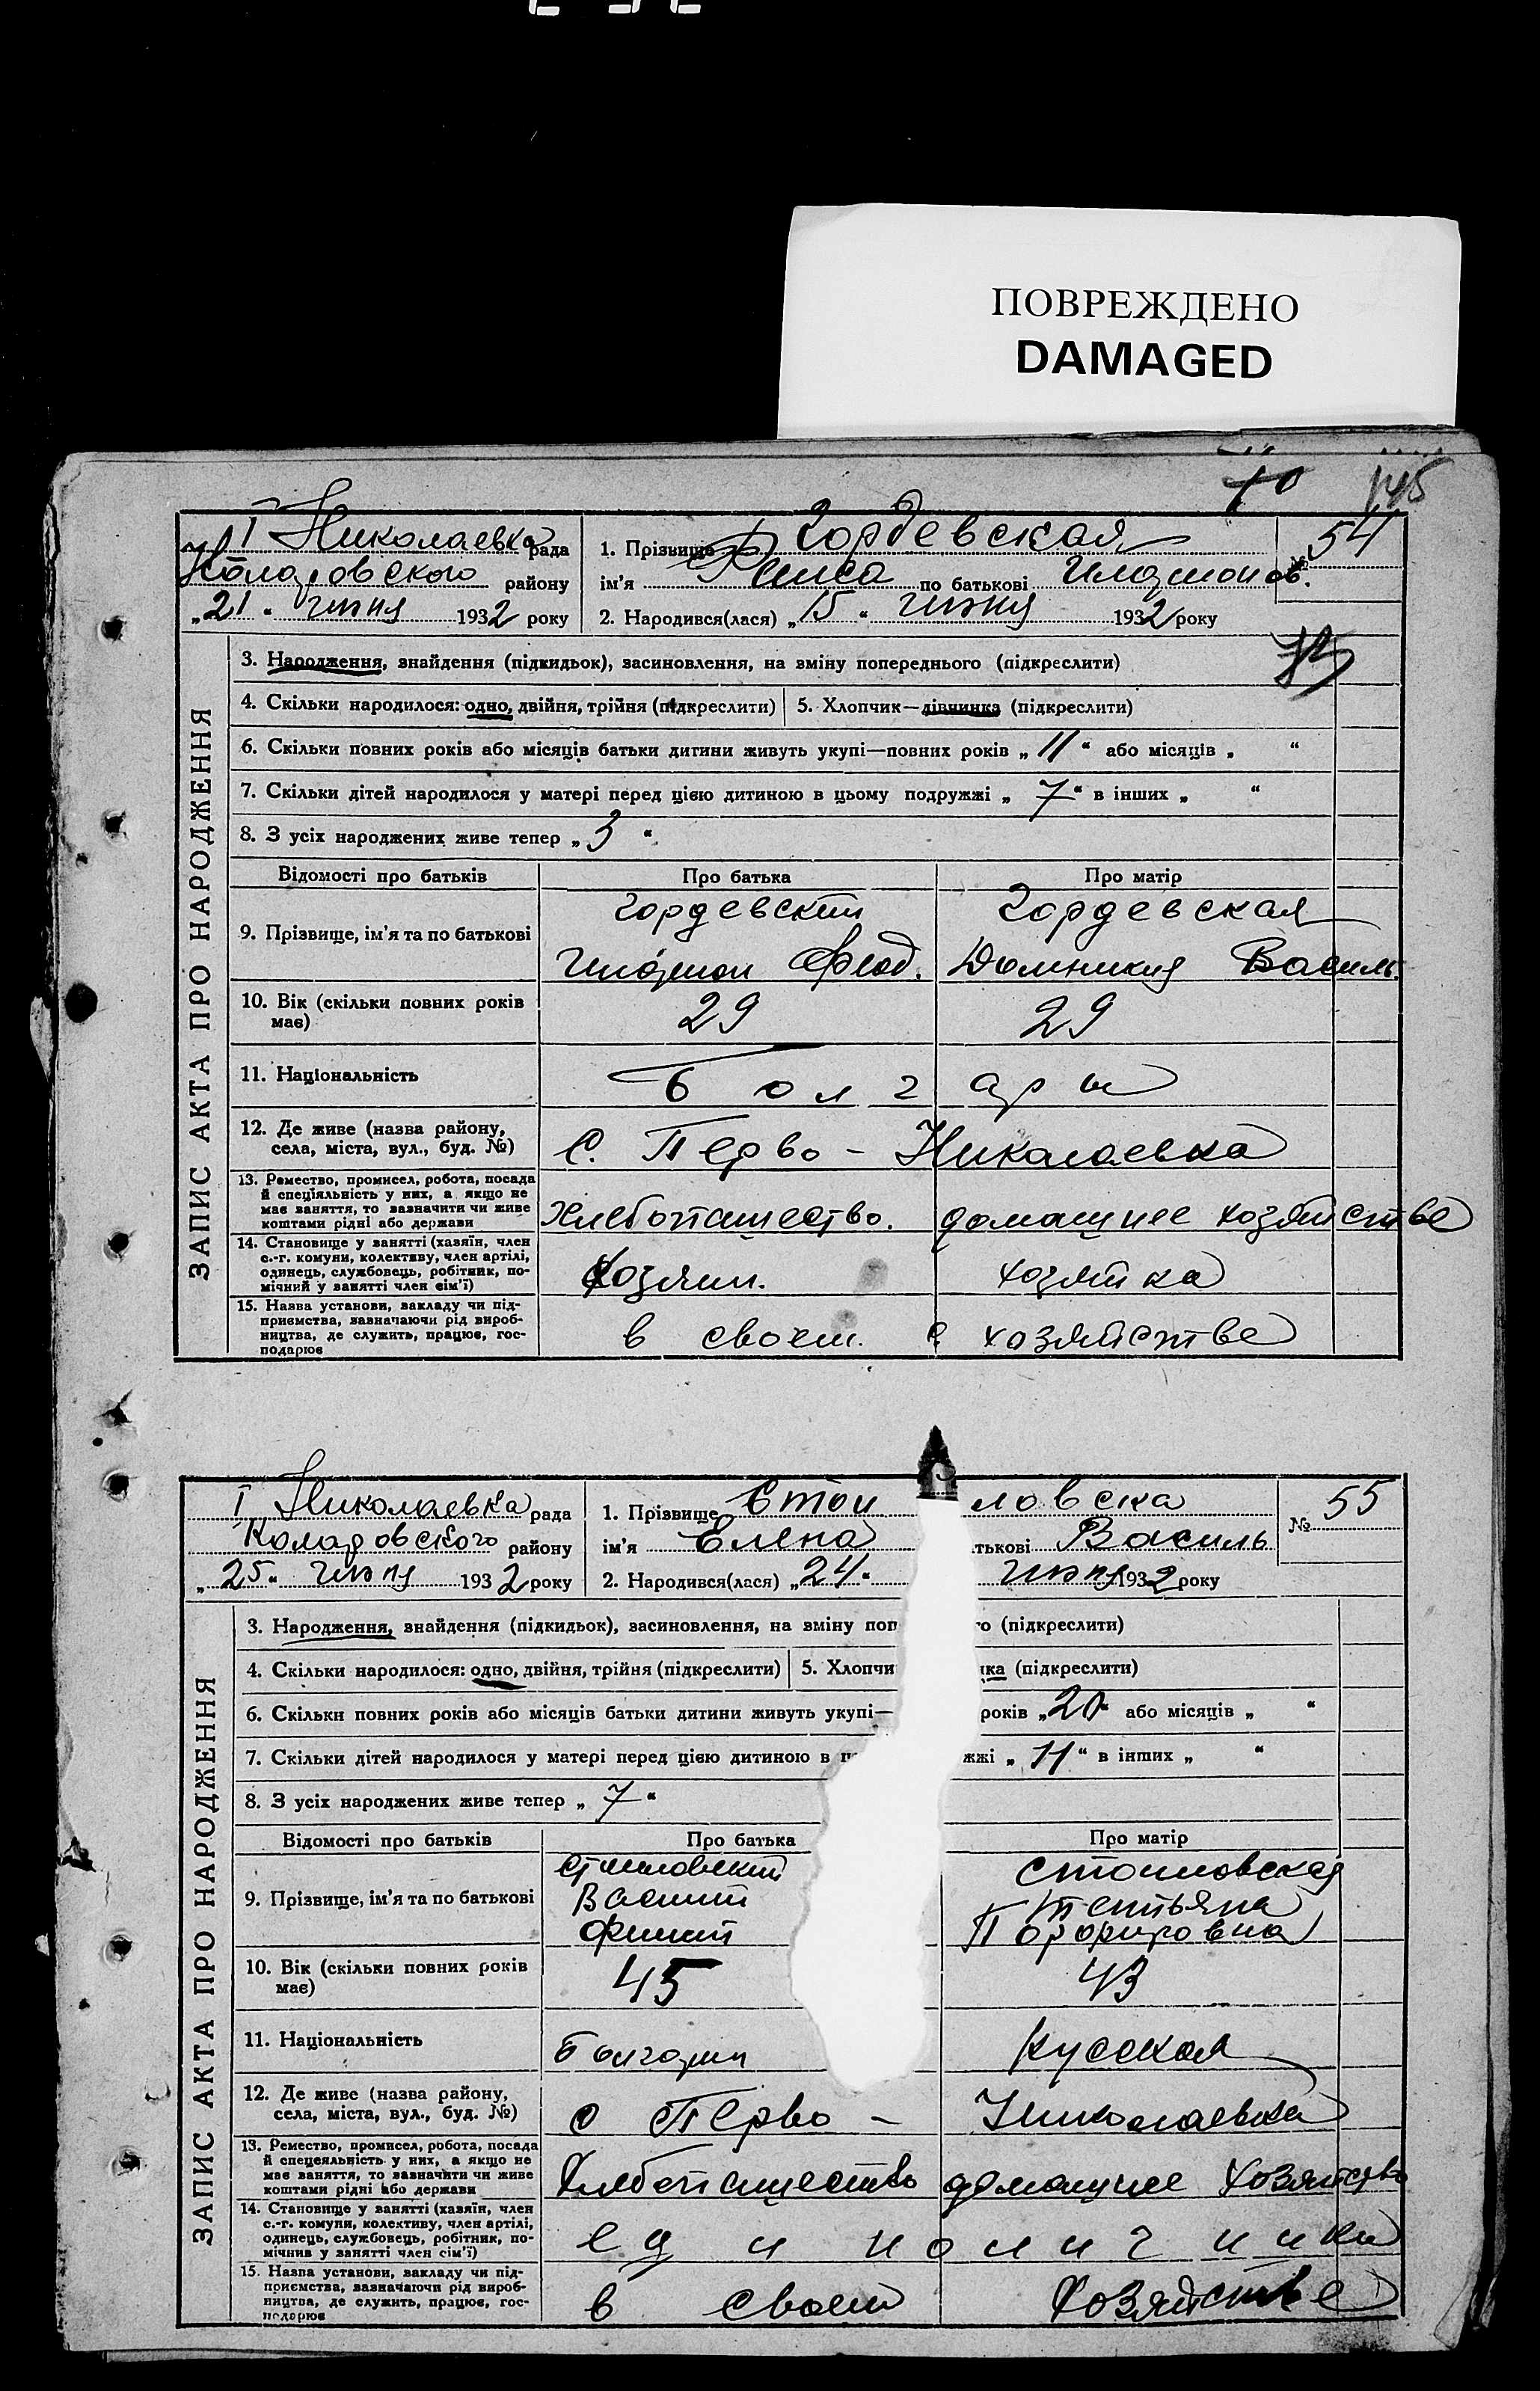 ПОВРЕЖДЕНО
DAMAGED
145
I Николаевка рада
Коларовского району
„21“ июня 1932 року
1. Прізвище Гордевская
ім'я Раиса по батькові
2. Народився(лася) „15“ июня 1932 року
№ 54
ЗАПИС АКТА ПРО НАРОДЖЕННЯ
3. Народження, знайдення (підкидьок), засиновлення, на зміну попереднього (підкреслити)
4. Скільки народилося: одно, двійня, трійня (підкреслити) 5. Хлопчик—дівчинка (підкреслити)
6. Скільки повних років або місяців батьки дитини живуть укупі—повних років „11“ або місяців „ “
7. Скільки дітей народилося у матері перед цією дитиною в цьому подружжі „7“ в інших „ “
8. З усіх народжених живе тепер „3“
Відомості про батьків Про батька Про матір
9. Прізвище, ім'я та по батькові
Гордевский Феод.
Гордевская Домникия Василь.
10. Вік (скільки повних років має) 29 29
11. Національність Болгары
12. Де живе (назва району, села, міста, вул., буд. №) С. Перво-Николаевка
13. Ремество, промисел, робота, посада
й спеціяльність у них, а якщо не
має заняття, то зазначити чи живе
коштами рідні або держави
Хлебопашество. домашнее хозяйстве
14. Становище у занятті (хазяїн, член
с.-г. комуни, колективу, член артілі,
одинець, службовець, робітник, по-
мічний у занятті член сім'ї)
Хозяин. хозяйка
15. Назва установи, закладу чи під-
приємства, зазначаючи рід вироб-
ництва, де служить, працює, гос-
подарює
в своем хозяйстве
I Николаевка рада
Коларовского району
„25“ июня 1932 року
1. Прізвище Стои ловска
ім'я Елена тькові Василь
2. Народився(лася) „24“ июня 1932 року
№ 55
ЗАПИС АКТА ПРО НАРОДЖЕННЯ
3. Народження, знайдення (підкидьок), засиновлення, на зміну поп о (підкреслити)
4. Скільки народилося: одно, двійня, трійня (підкреслити) 5. Хлопчи ка (підкреслити)
6. Скільки повних років або місяців батьки дитини живуть укупі— років „20“ або місяців „ “
7. Скільки дітей народилося у матері перед цією дитиною в ц жжі „11“ в інших „ “
8. З усіх народжених живе тепер „7“
Відомості про батьків Про батька Про матір
9. Прізвище, ім'я та по батькові
Василий
Татьяна
Порфировна
10. Вік (скільки повних років має) 45 43
11. Національність Болгарин Русская
12. Де живе (назва району, села, міста, вул., буд. №) с Перво - Николаевка
13. Ремество, промисел, робота, посада
й спецеяльність у них, а якщо не
має заняття, то зазначити чи живе
коштами рідні або держави
Хлебопашество домашнее хозяйство
14. Становище у занятті (хазяїн, член
с.-г. комуни, колективу, член артілі,
одинець, службовець, робітник, по-
мічний у занятті член сім'ї)
единоличники
15. Назва установи, закладу чи під-
приємства, зазначаючи рід вироб-
ництва, де служить, працює, гос-
подарює
в своем Хозяйстве